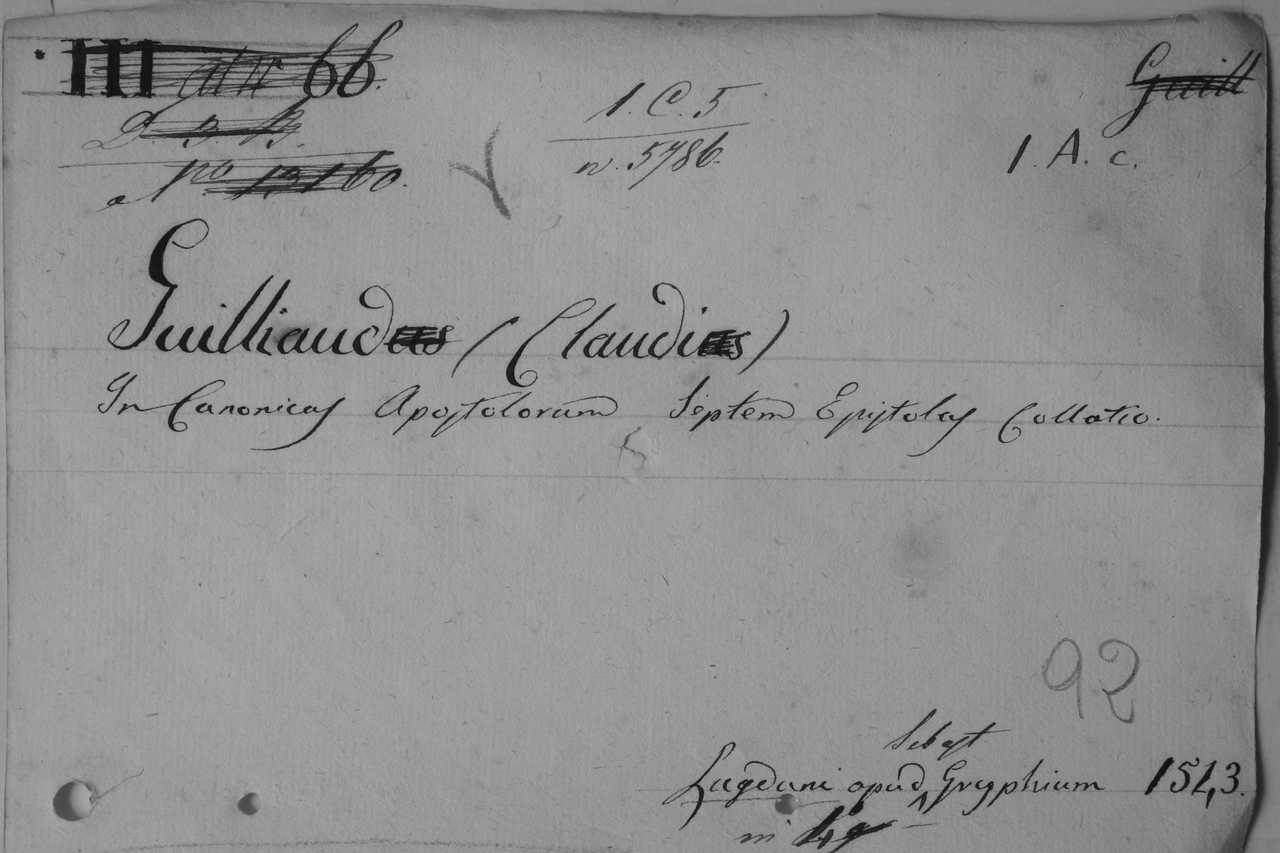 III 66.
Guill
D. 3. B.
No 13160.
1. C. 5
n. 5786.
1. A. c.
Guilliaudus (Claudius)
In Canonicas Apostolorum Septem Epistolas Collatio.
92
Sebast
Lugduni apud Gryphium 1543.
in